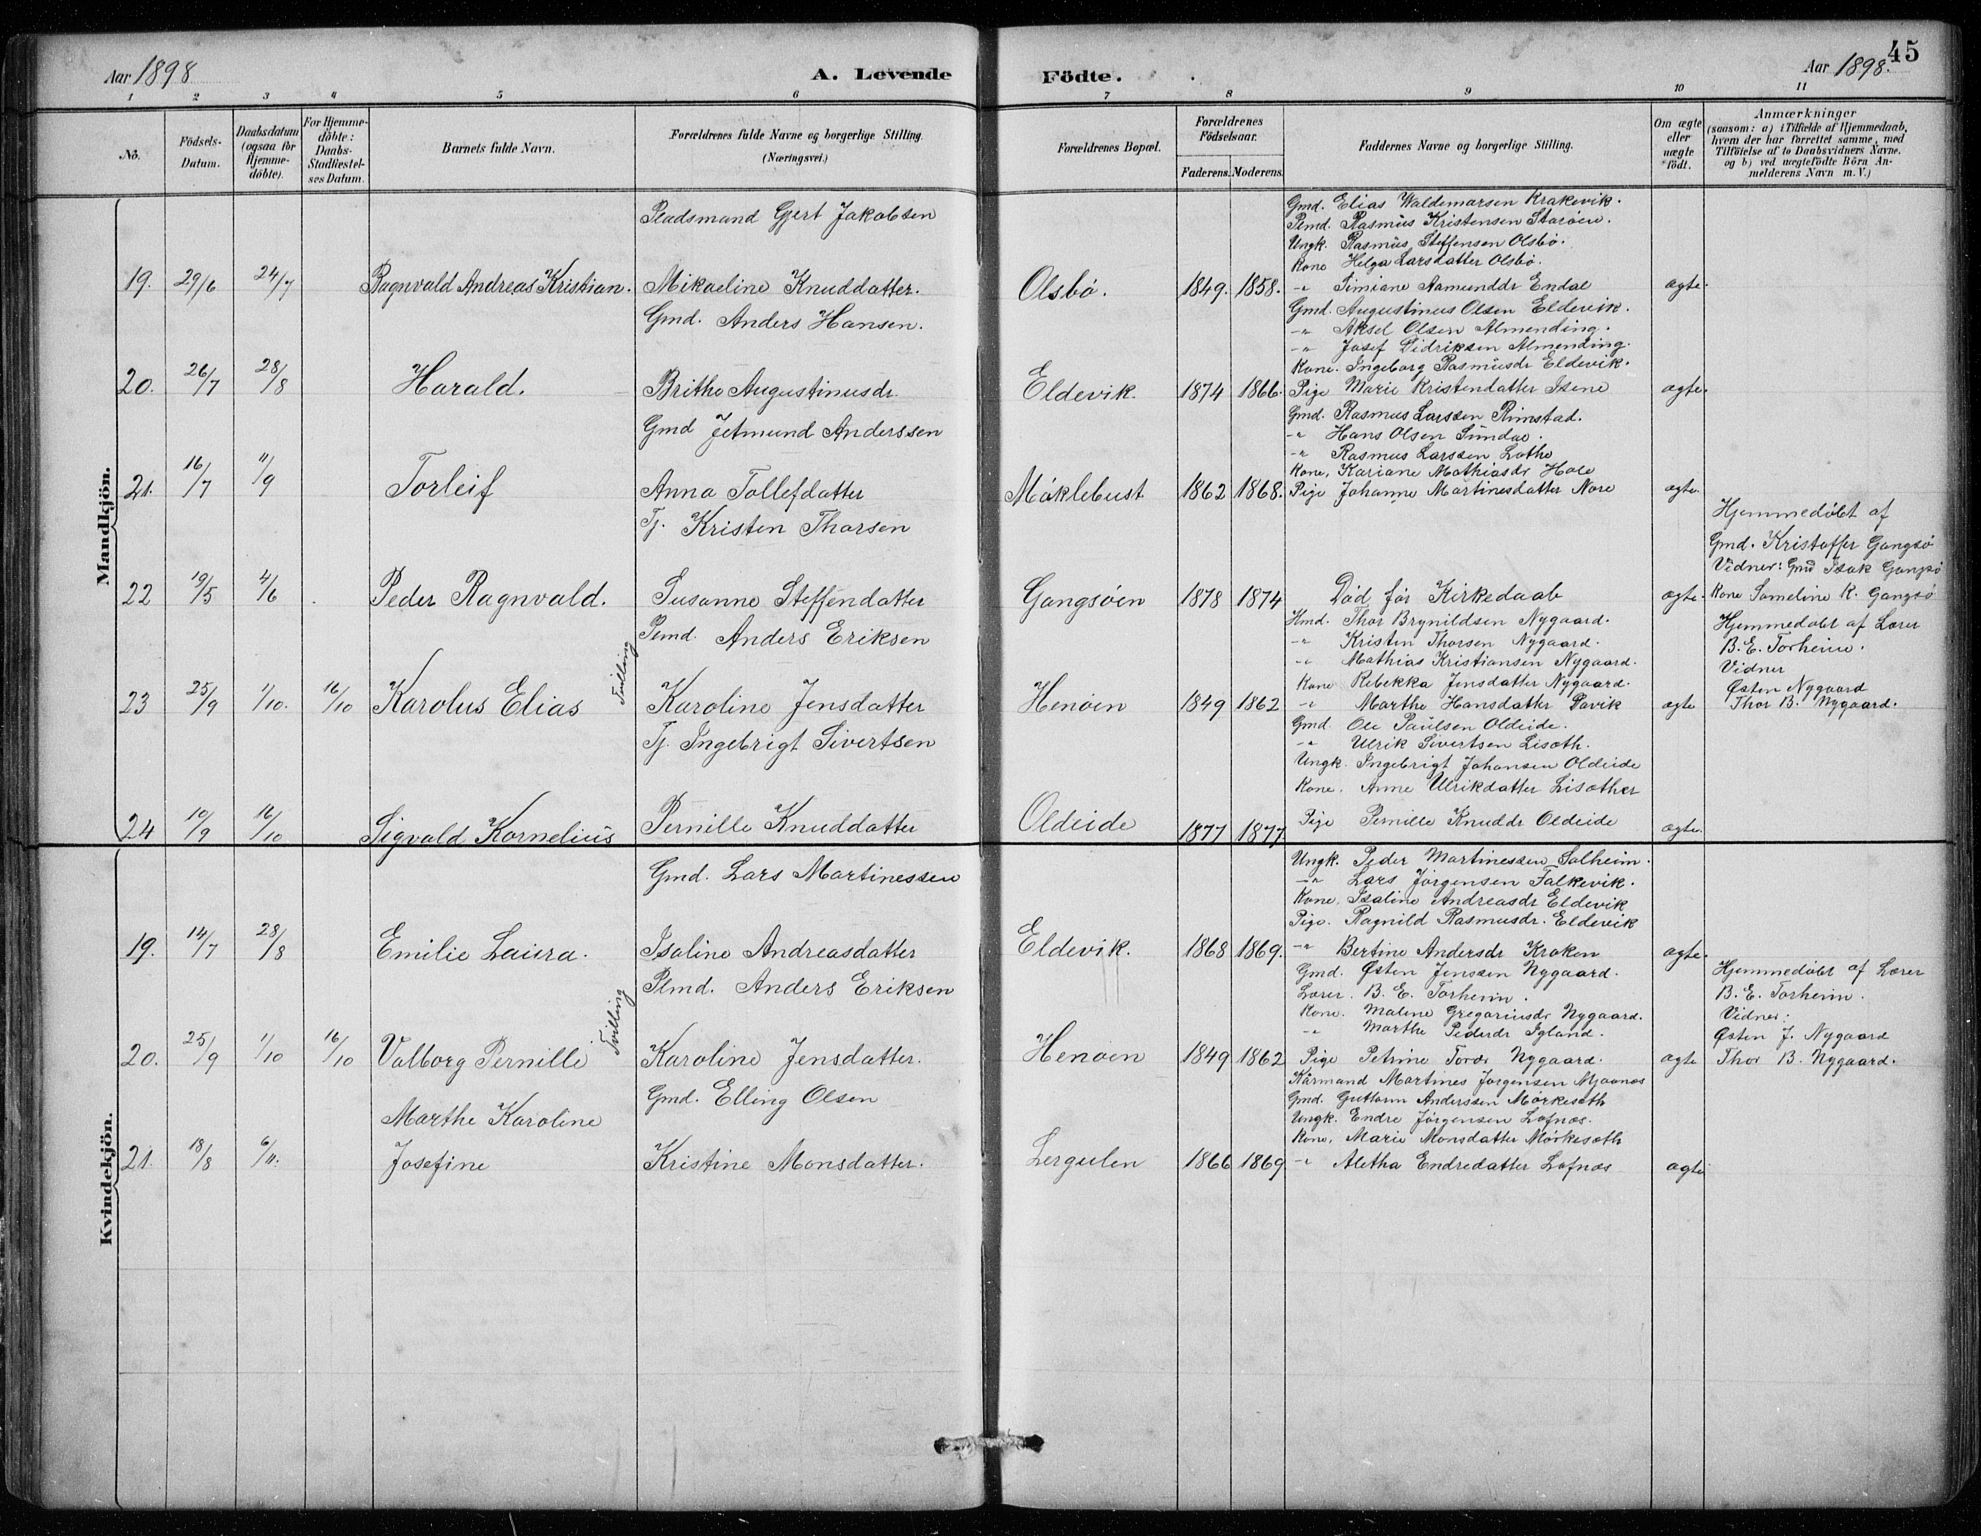 45
Aar 1898
A. Levende
Födte.
Aar 1898.
1 2 3 4 5 6 7 8 9 10 11
No.
Födsels-Datum.
Daabsdatum (ogsaa for Hjemme-döbte).
For Hjemme-döbte: Daabs-Stadfæstel-ses Datum.
Barnets fulde Navn.
Forældrenes fulde Navne og borgerlige Stilling.
(Næringsvei.)
Forældrenes Bopæl.
Forældrenes Födselsaar.
Faderens. Moderens.
Faddernes Navne og borgerlige Stilling.
Om ægte eller uægte födt.
Anmærkninger
(saasom: a) i Tilfælde af Hjemmedaab,
hvem der har forrettet samme, med
Tilföielse af to Daabsvidners Navne.
og b) ved uægtefödte Börn An-
melderens Navn m. V.)
Mandkjön.
Pladsmand Gjert Jakobsen
Gmd. Elias Waldemarsen Krakevik.
Plmd. Rasmus Kristensen Starøen.
Ungk. Rasmus Steffensen Olsbø.
Kone Helga Larsdatter Olsbø.
19. 29/6 24/7 Ragnvald Andreas Kristian. Mikaeline Knuddatter. Olsbø. 1849. 1858. -"- Simiane Aamunddr Endal ægte.
Gmd. Anders Hansen.
Gmd. Augustinus Olsen Eldevik.
-"- Aksel Olsen Almending.
-"- Josef Didriksen Almending.
Kone. Ingeborg Rasmusdr Eldevik.
20. 26/7 28/8 Harald. Brithe Augustinusdr. Eldevik. 1874 1866. Pige Marie Kristendatter Isene ægte.
Gmd Jetmund Anderssen
Gmd. Rasmus Larssen Rimstad.
-"- Hans Olsen Sundal.
-"- Rasmus Larssen Lothe
Kone, Kariane Mathiasdr Hole
21. 16/7 11/9 Torleif Anna Tollefdatter Møklebust 1862 1868. Pige Johanne Martinesdatter Nore ægte.
Tj. Kristen Thorsen
Hjemmedøbt af
Gmd. Kristoffer Gangsø
Vidner: Gmd Isak Gangsø
22 19/5 4/6 Peder Ragnvald. Susanne Steffendatter Gangsøen 1878 1874 Død før Kirkedaab ægte. Kone Sameline K. Gangsø
Plmd. Anders Eriksen
Hmd. Thor Brynildsen Nygaard.
-"- Kristen Thorsen Nygaard.
-"- Mathias Kristiansen Nygaard.
Kone Rebekka Jensdatter Nygaard.
Hjemmedøbt af Lærer
B. E. Torheim.
Vidner
Østen Nygaard
23 25/9 1/10. 16/10 Karolus Elias Tvilling Karoline Jensdatter Henøen 1849 1862 -"- Marthe Hansdatter Pavik ægte Thor B. Nygaard.
Tj. Ingebrigt Sivertsen
Gmd. Ole Paulsen Oldeide.
-"- Ulrik Sivertsen Lisæth.
Ungk. Ingebrigt Johansen Oldeide
Kone. Anne Ulrikdatter Lisæther
24 10/9 16/10 Sigvald Kornelius Pernille Knuddatter Oldeide 1877 1877 Pige Pernille Knuddr Oldeide ægte.
Kvindekjön.
Gmd. Lars Martinessen
Ungk. Peder Martinessen Solheim.
-"- Lars Jørgensen Falkevik.
Kone. Isaline Andreasdr Eldevik
Pige. Ragnild Rasmusdr. Eldevik
19. 14/7 28/8 Emilie Laura. Isaline Andreasdatter Eldevik. 1868 1869. -"- Bertine Andersdr Kroken ægte.
Plmd. Anders Eriksen
Gmd. Østen Jenssen Nygaard.
Lærer. B. E. Torheim.
Kone. Malene Gregoriusdr Nygaard.
-"- Marthe Pedersdr Igland.
Hjemmedøbt af Lærer
B. E. Torheim.
Vidner:
Østen J. Nygaard
20. 25/9 1/10 16/10 Valborg Pernille Tvilling Karoline Jensdatter. Henøen 1849 1862 Pige Petrine Nygaard. ægte Thor B. Nygaard.
Gmd. Elling Olsen
Kårmand Martines Jørgensen Mjaanes
Gmd. Guttorm Anderssen Mørkesæth
Ungk. Endre Jørgensen Lofnæs.
Kone, Marie Monsdatter Mørkesæth
Marthe Karoline
21. 18/8 6/11. Josefine Kristine Monsdatter. Lergulen 1866 1869 -"- Aletha Endredatter Lofnæs ægte